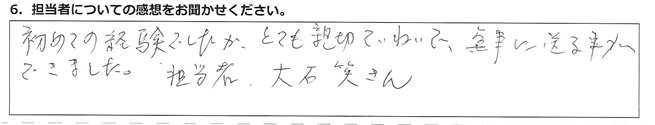 6. 担当者についての感想をお聞かせください。
初めての経験でしたが、とても親切ていねいで、無事に送る事が
できました。 担当者、大石 笑さん